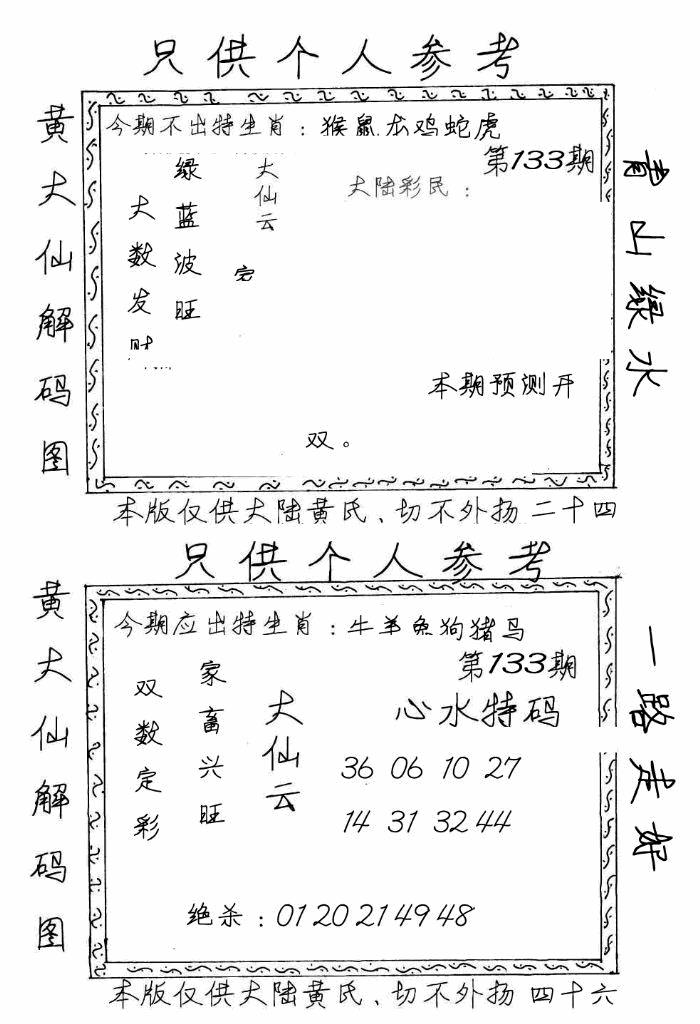 只供个人参考
黄大仙解码图
今期不出特生肖：猴鼠龙鸡蛇虎
第133期
大陆彩民：
大仙云
绿蓝波旺
大数发财
定
本期预测开
双。
青山绿水
本版仅供大陆黄氏、切不外扬 二十四
只供个人参考
黄大仙解码图
今期应出特生肖：牛羊兔狗猪马
第133期
双数定彩
家畜兴旺
大仙云
心水特码
36 06 10 27
14 31 32 44
绝杀：01 20 21 49 48
一路走好
本版仅供大陆黄氏、切不外扬 四十六